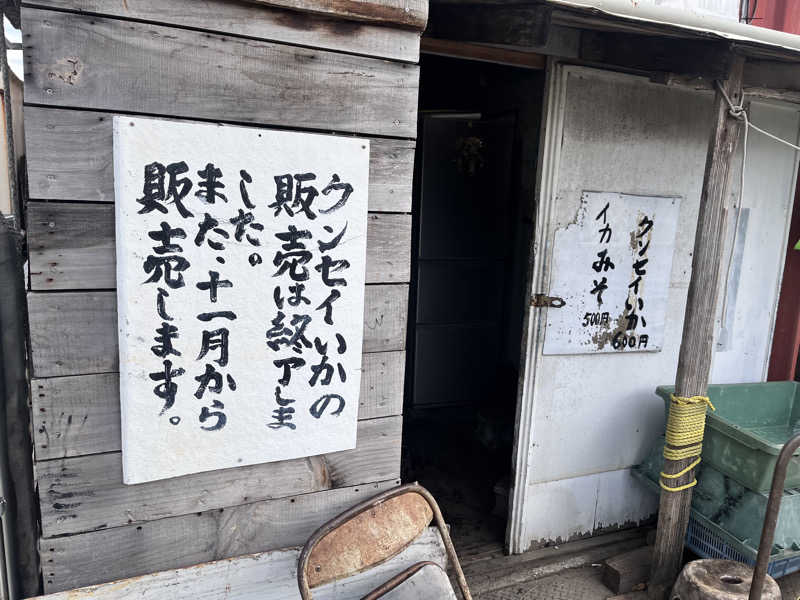 ウンセイいかの
販売は終了しま
した。
また、十一月から
販売します。
ウンセイいか
600円
イカみそ
500円